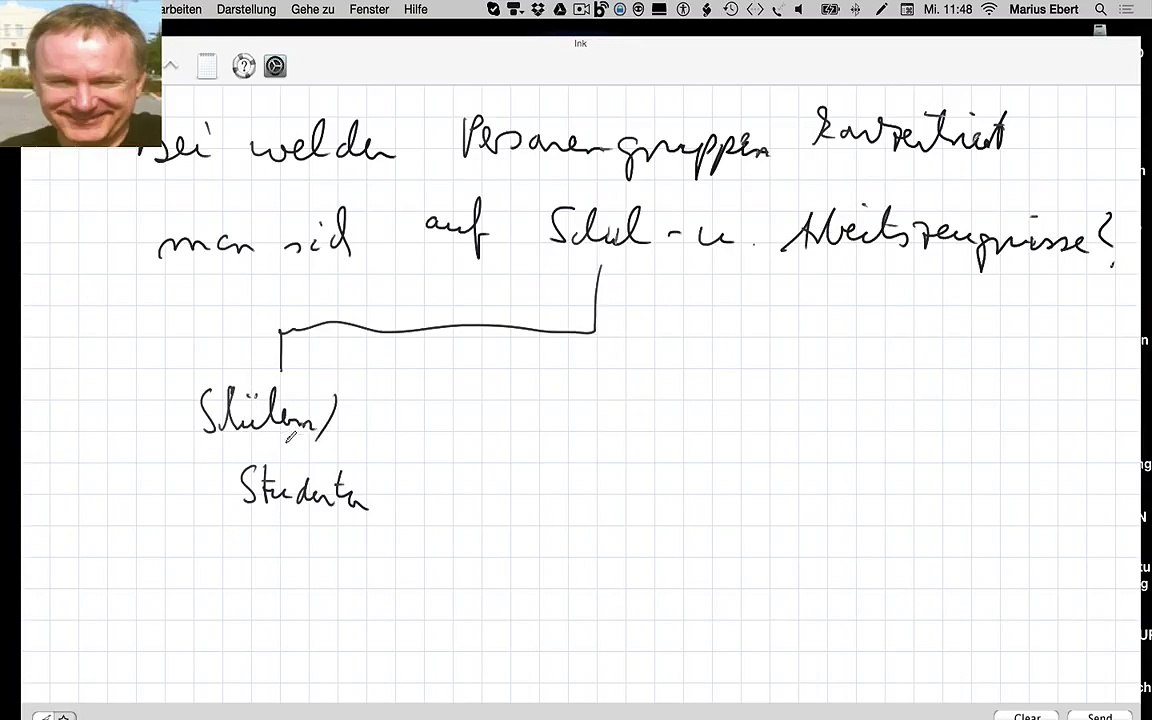 arbeiten Darstellung Gehe zu Fenster Hilfe Mi. 11:48 Marius Ebert
Ink
Bei welchen Personengruppen konzentriert
man sich auf Schul- u. Arbeitszeugnisse?
Schülern/
Studenten
Clear Send